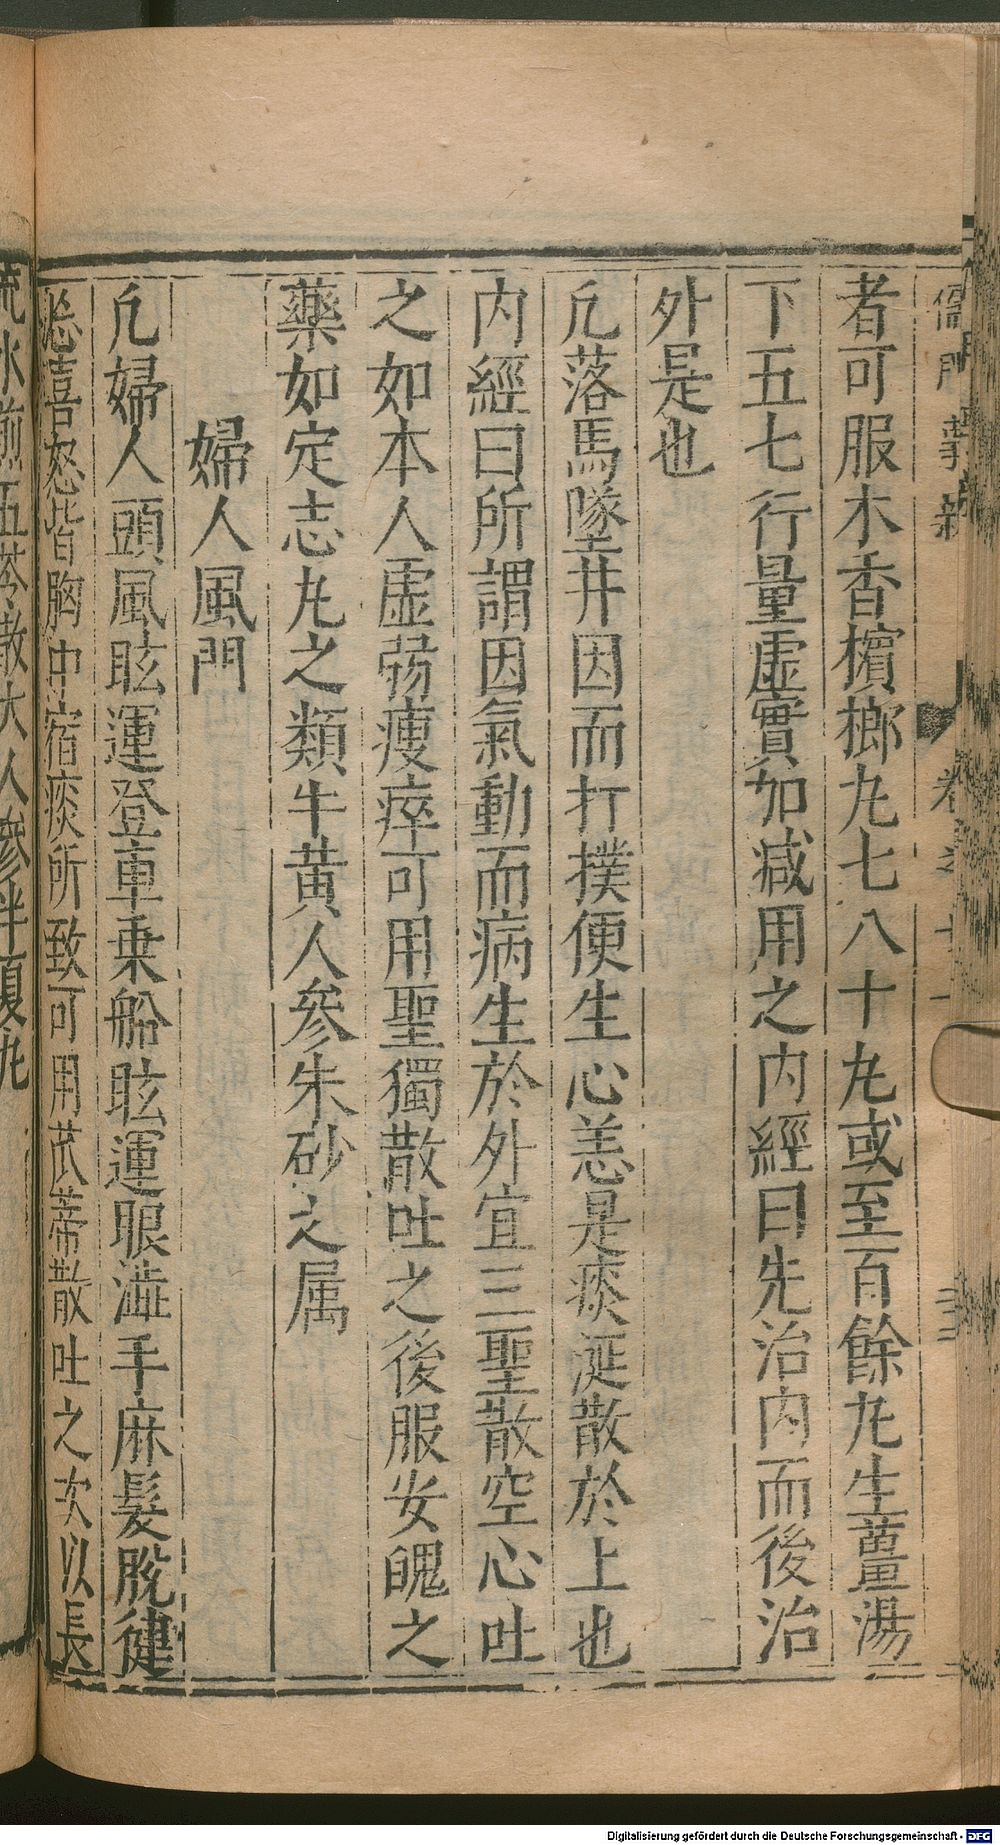 儒門事親 卷之十一
者可服木香檳榔丸七八十丸或至百餘丸生薑湯
下五七行量虛實加减用之内經曰先治内而後治
外是也
凢落馬墜井因而打撲便生心恙是痰涎散於上也
内經曰所謂因氣動而病生於外宜三聖散空心吐
之如本人虛弱瘦瘁可用聖獨散吐之後服安魄之
藥如定志丸之類牛黃人參朱砂之属
婦人風門
凢婦人頭風眩運登車乗船眩運眼澁手麻髮脫健
忘喜怒皆胸中宿痰所致可用苽蒂散吐之次以長
流水煎五苓散大人參半夏丸
Digitalisierung gefördert durch die Deutsche Forschungsgemeinschaft - DFG